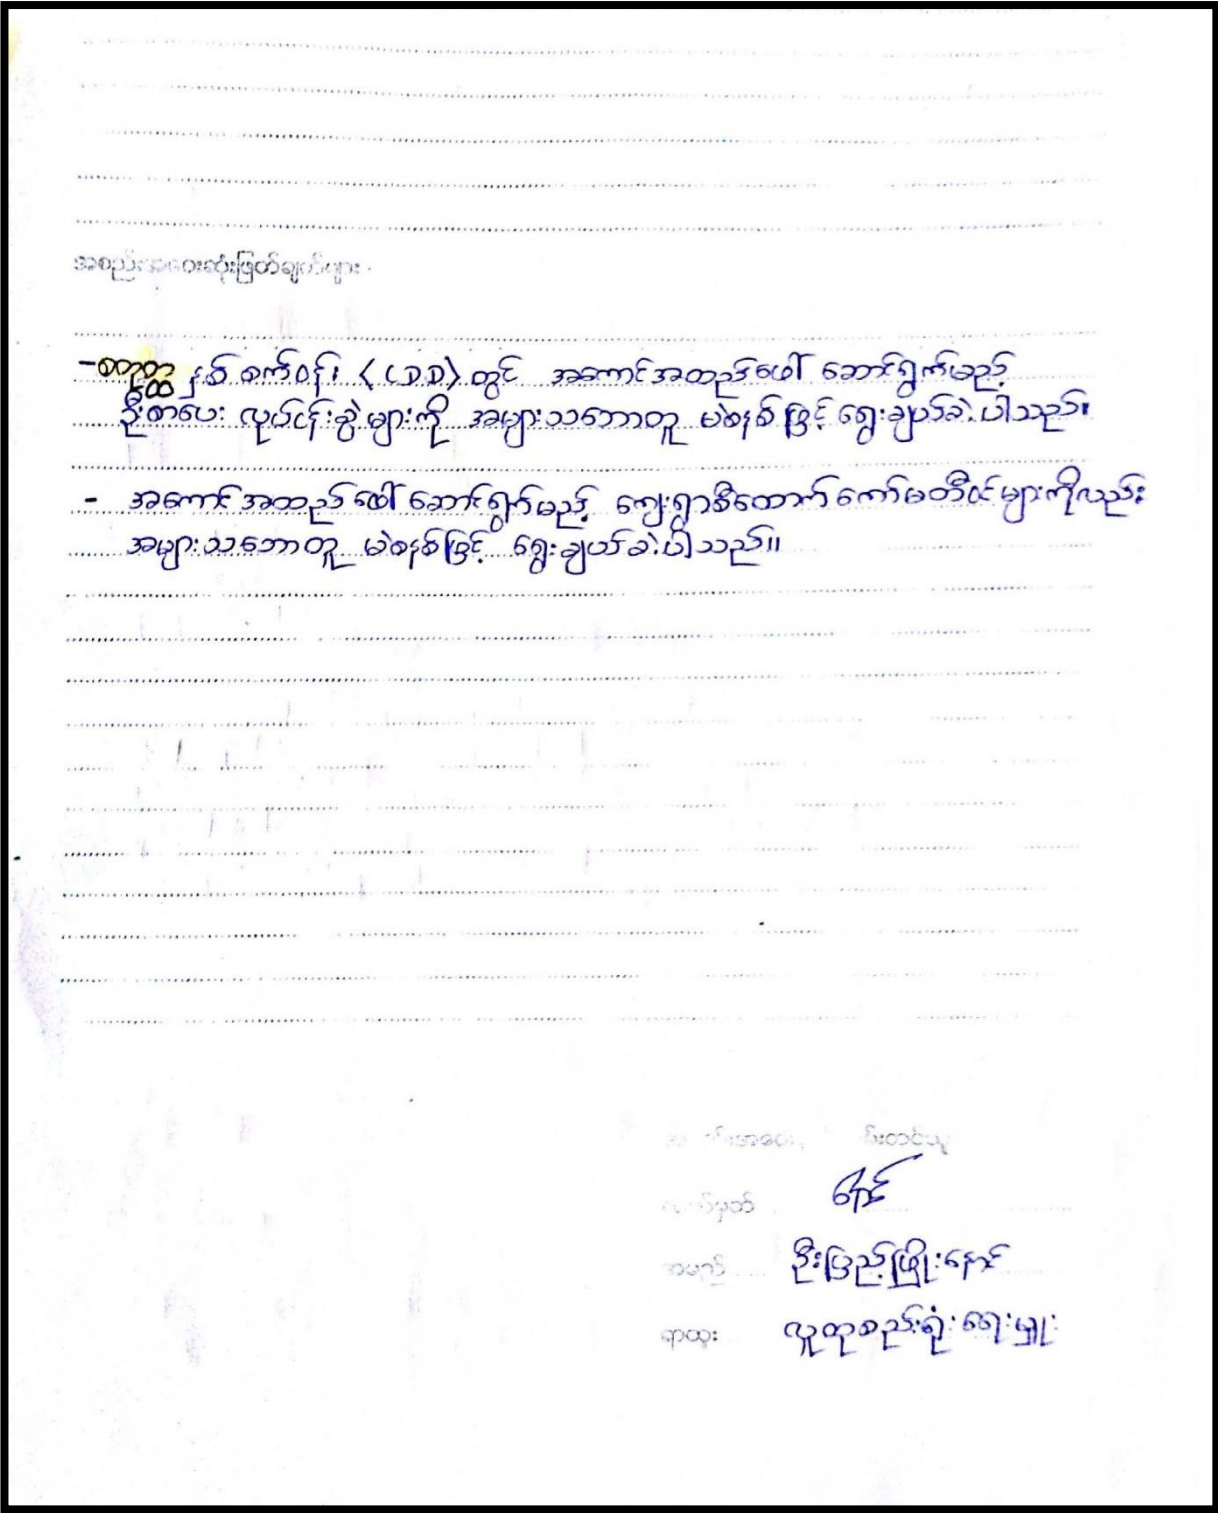 အစည်းအဝေးဆုံးဖြတ်ချက်များ
- စတုတ္ထ နှစ် စက်ဝန်း တွင် အကောင်အထည်ဖေါ် ဆောင်ရွက်မည့်
ဦးစားပေး လုပ်ငန်းခွဲ များကို အများသဘောတူ မဲစနစ်ဖြင့် ရွေးချယ်ခဲ့ပါသည်။
- အကောင်အထည်ဖေါ် ဆောင်ရွက်မည့် ကျေးရွာစီထောက်ကော်မတီဝင်များကိုလည်း
အများသဘောတူ မဲစနစ်ဖြင့် ရွေးချယ်ခဲ့ပါသည်။
လက်မှတ်
အမည် ဦးပြည့်ဖြိုးနောင်
ရာထူး လူထုစည်းရုံးရေးမှူး